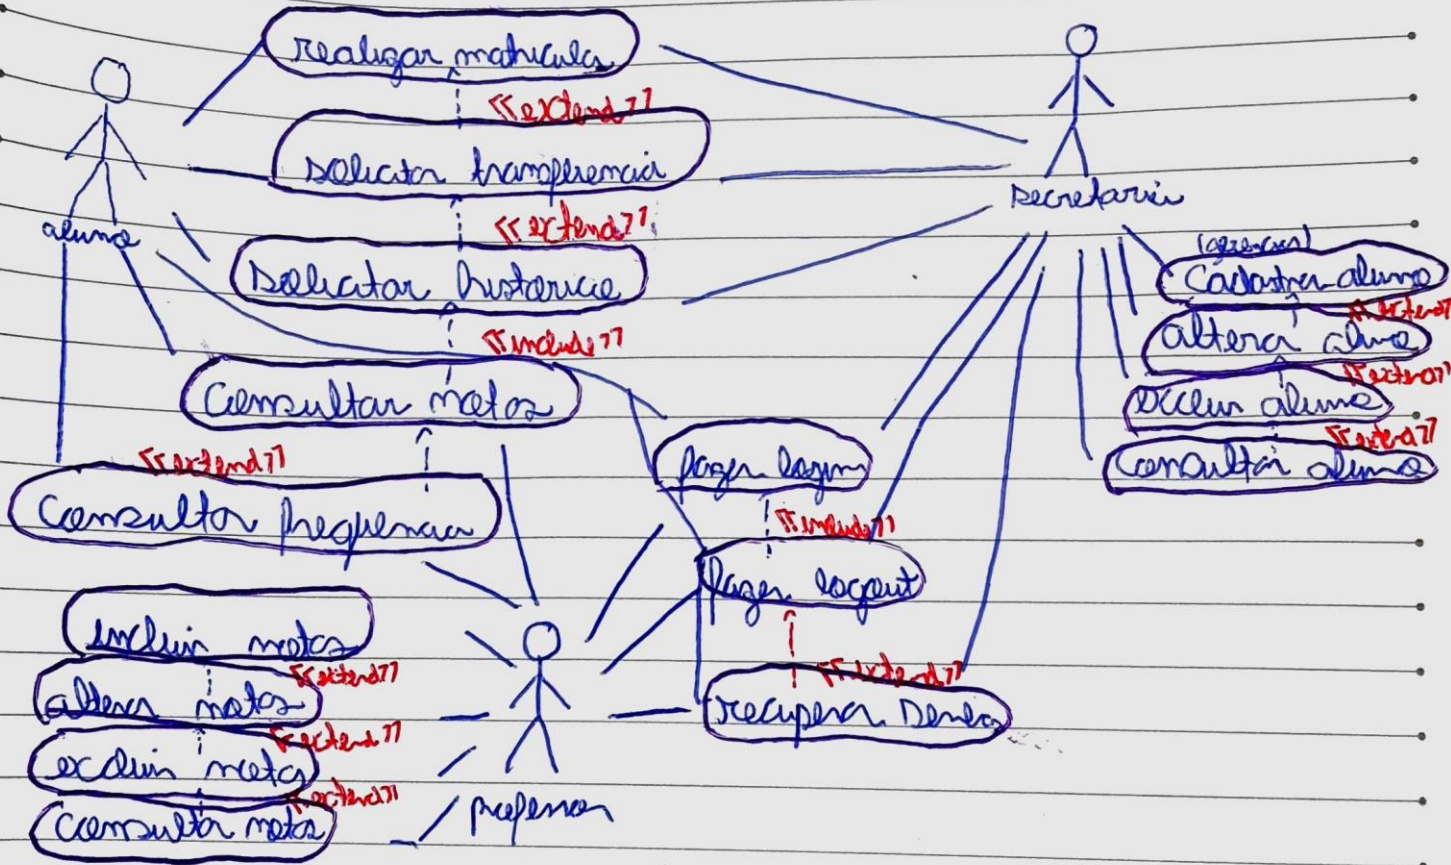 realizar matricula
<<extend>>
solicitar transferencia
<<extend>>
solicitar historico
<<include>>
consultar notas
<<extend>>
consultar frequencia
aluno
secretaria
(gerenciar)
Cadastrar aluno
<<extend>>
altera aluno
<<extend>>
excluir aluno
<<extend>>
consultar aluno
fazer login
<<include>>
fazer logout
<<extend>>
recuperar senha
incluir notas
<<extend>>
alterar notas
<<extend>>
excluir notas
<<extend>>
consultar notas
professor